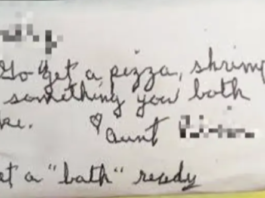 Go get a pizza, shrimp
something you both
♡ Aunt
"bath" ready